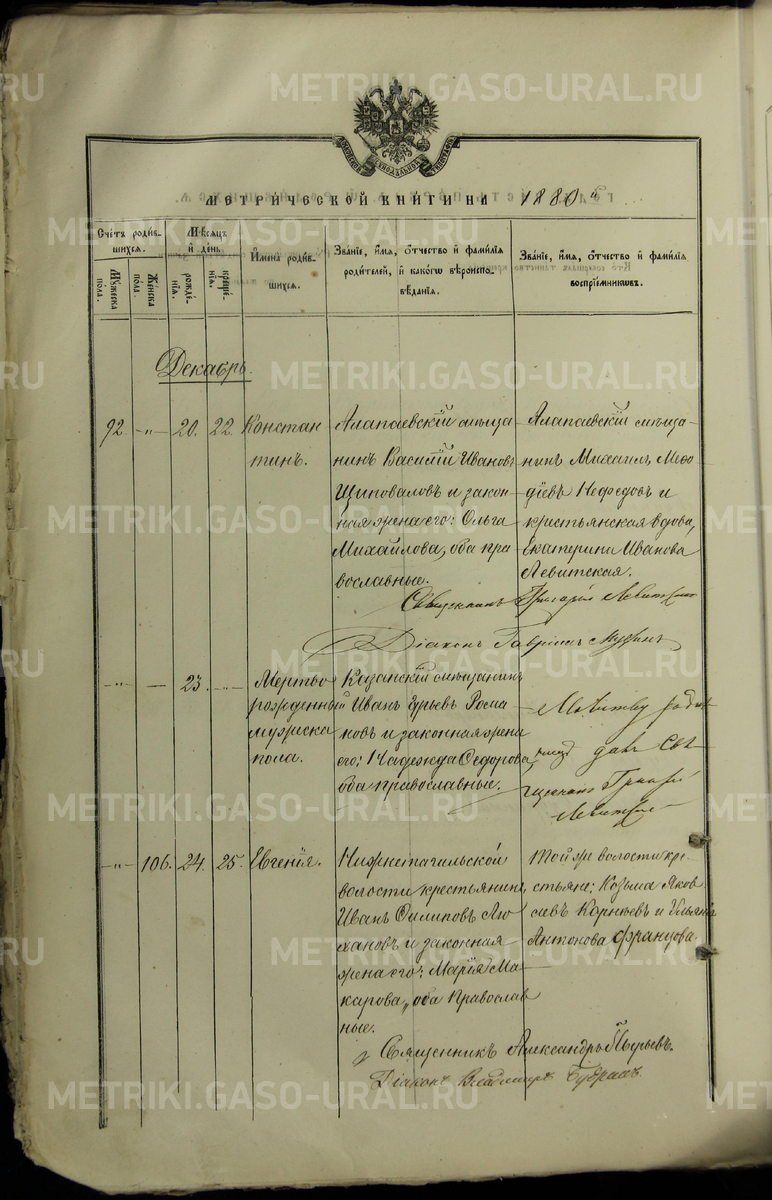 METRIKI.GASO-URAL.RU
МЕТРИ́ЧЕСКОЙ КНИ́ГИ НА 1880й
Счетъ роди́вшихся.
Мѣсяцъ и де́нь.
Имена̀ роди́вшихся.
Зва́нїе, и́мя, о́тчество и̂ фами́лїя роди́телей, и̂ како́гѡ вѣроисповѣ́данїя.
Зва́нїе, и́мя, о́тчество и̂ фами́лїя воспрїе́мникѡвъ.
Му́жеска по́ла.
Же́нска по́ла.
рожде́нїя.
креще́нїя.
Декабрь.
92 -„- 20. 22. Констан
тинъ.
Алапаевскій мѣща
нинъ Василій Ивановъ
Щиповаловъ и закон
ная жена его: Ольга
Михайлова, оба пра
вославные.
Алапаевскій мѣща
нинъ Михаилъ Меѳо
діевъ Нефедовъ и
крестьянская вдова,
Екатерина Иванова
Левитская.
Священникъ Григорій Левитскій
Діаконъ Гавріилъ
-„- — 23. -„- Мертво
рожденный
мужеска
пола.
Казанскій мѣщанинъ
Иванъ Гурьевъ Рома
новъ и законная жена
его: Надежда Ѳедорова,
оба православные.
Молитву родиль
ницѣ далъ Свя
щенникъ Григорій
Левитскій
-„- 106. 24. 25. Евгенія.
Нижнетагильской
волости крестьянинъ
Иванъ Филиповъ Лю
хановъ и законная
жена его: Марія Ма
карова, оба православ
ные.
Той же волости кре
стьяне: Козьма Яков
левъ Корнѣевъ и Ульяна
Антонова Францова.
Священникъ Александръ
Діаконъ Владиміръ